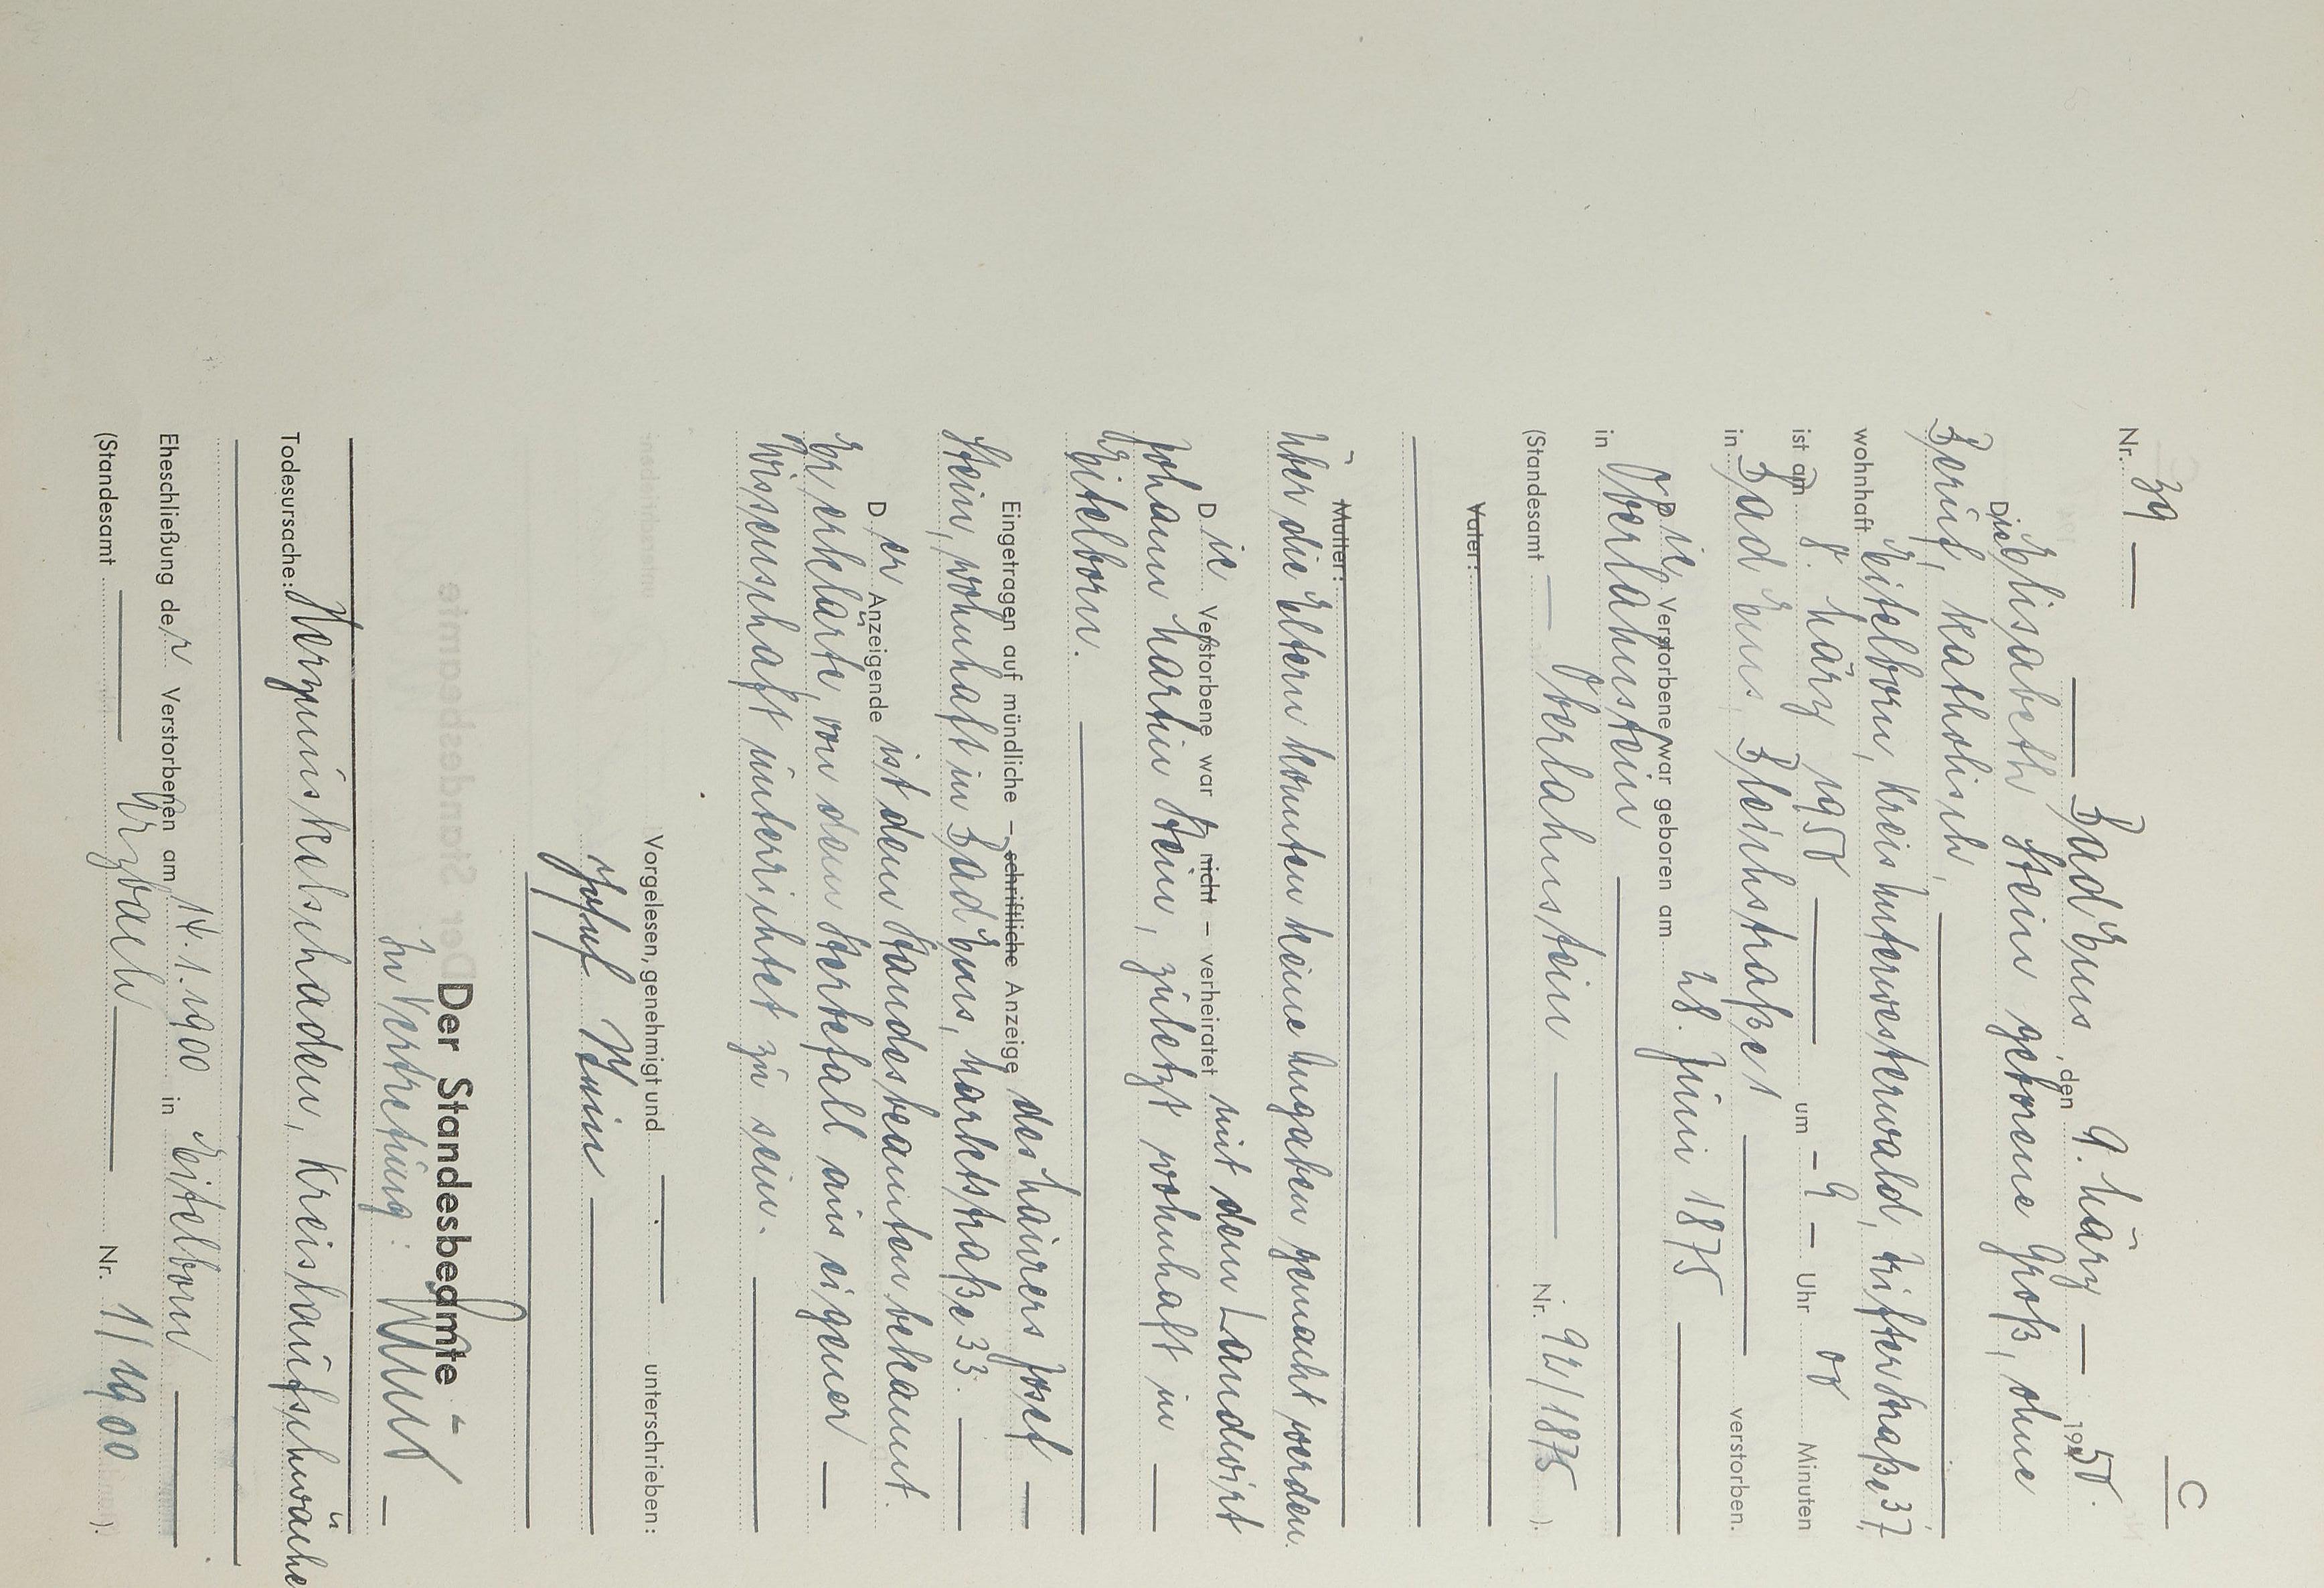 C
Nr. 39
Bad Ems, den 9. März 1950.
Die Elisabeth Stein geborene Groß, ohne
Beruf, katholisch,
wohnhaft Eitelborn, Kreis Unterwesterwald, Trifterstraße 37,
ist am 8. März 1950 um - 9 - Uhr 00 Minuten
in Bad Ems, Bleichstraße 1 verstorben.
Die Verstorbene war geboren am 28. Juni 1875
in Oberlahnstein
(Standesamt Oberlahnstein Nr. 92/1875 ).
Vater:
Mutter:
Über die Eltern konnten keine Angaben gemacht werden.
Die Verstorbene war – nicht – verheiratet mit dem Landwirt
Johann Martin Stein, zuletzt wohnhaft in
Eitelborn.
Eingetragen auf mündliche – schriftliche Anzeige des Maurers Josef
Stein, wohnhaft in Bad Ems, Marktstraße 33.
Der Anzeigende ist dem Standesbeamten bekannt.
Er erklärte, von dem Sterbefall aus eigener
Wissenschaft unterrichtet zu sein.
Vorgelesen, genehmigt und unterschrieben:
Josef Stein
Der Standesbeamte
In Vertretung:
Todesursache: Herzmuskelschaden, Kreislaufschwäche
Eheschließung der Verstorbenen am 14.1.1900 in Eitelborn
(Standesamt Arzbach Nr. 1/1900 ).